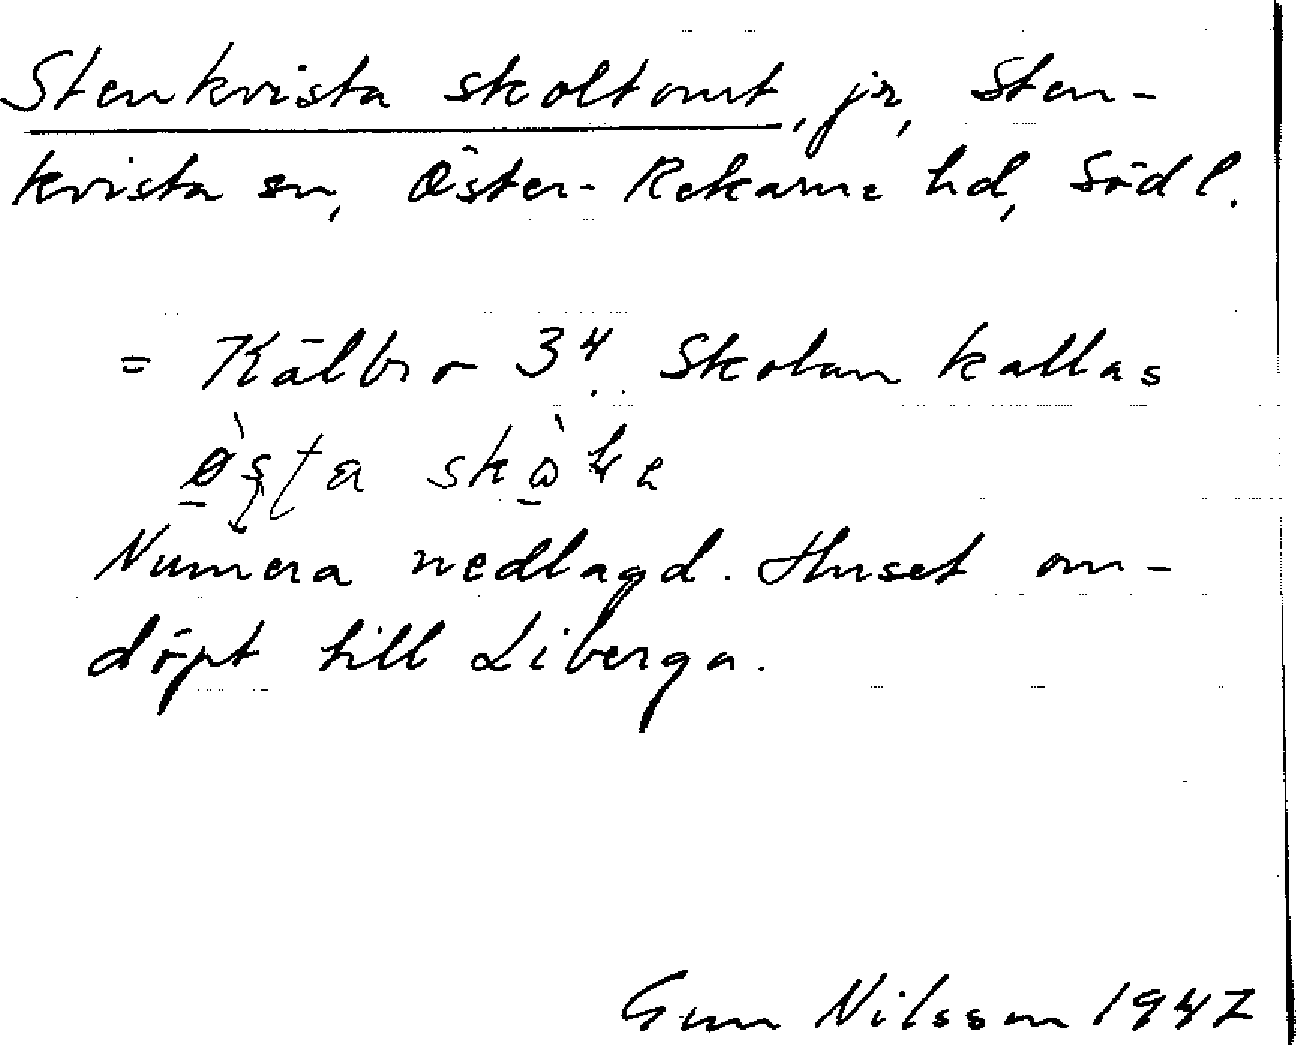 Stenkvista skoltomt, jr, Sten-
kvista sn, Öster-Rekarne hd, Södl.
= Kälbro 3⁴. Skolan kallas
Numera nedlagd. Huset om-
döpt till Liberga.
Gun Nilsson 1947